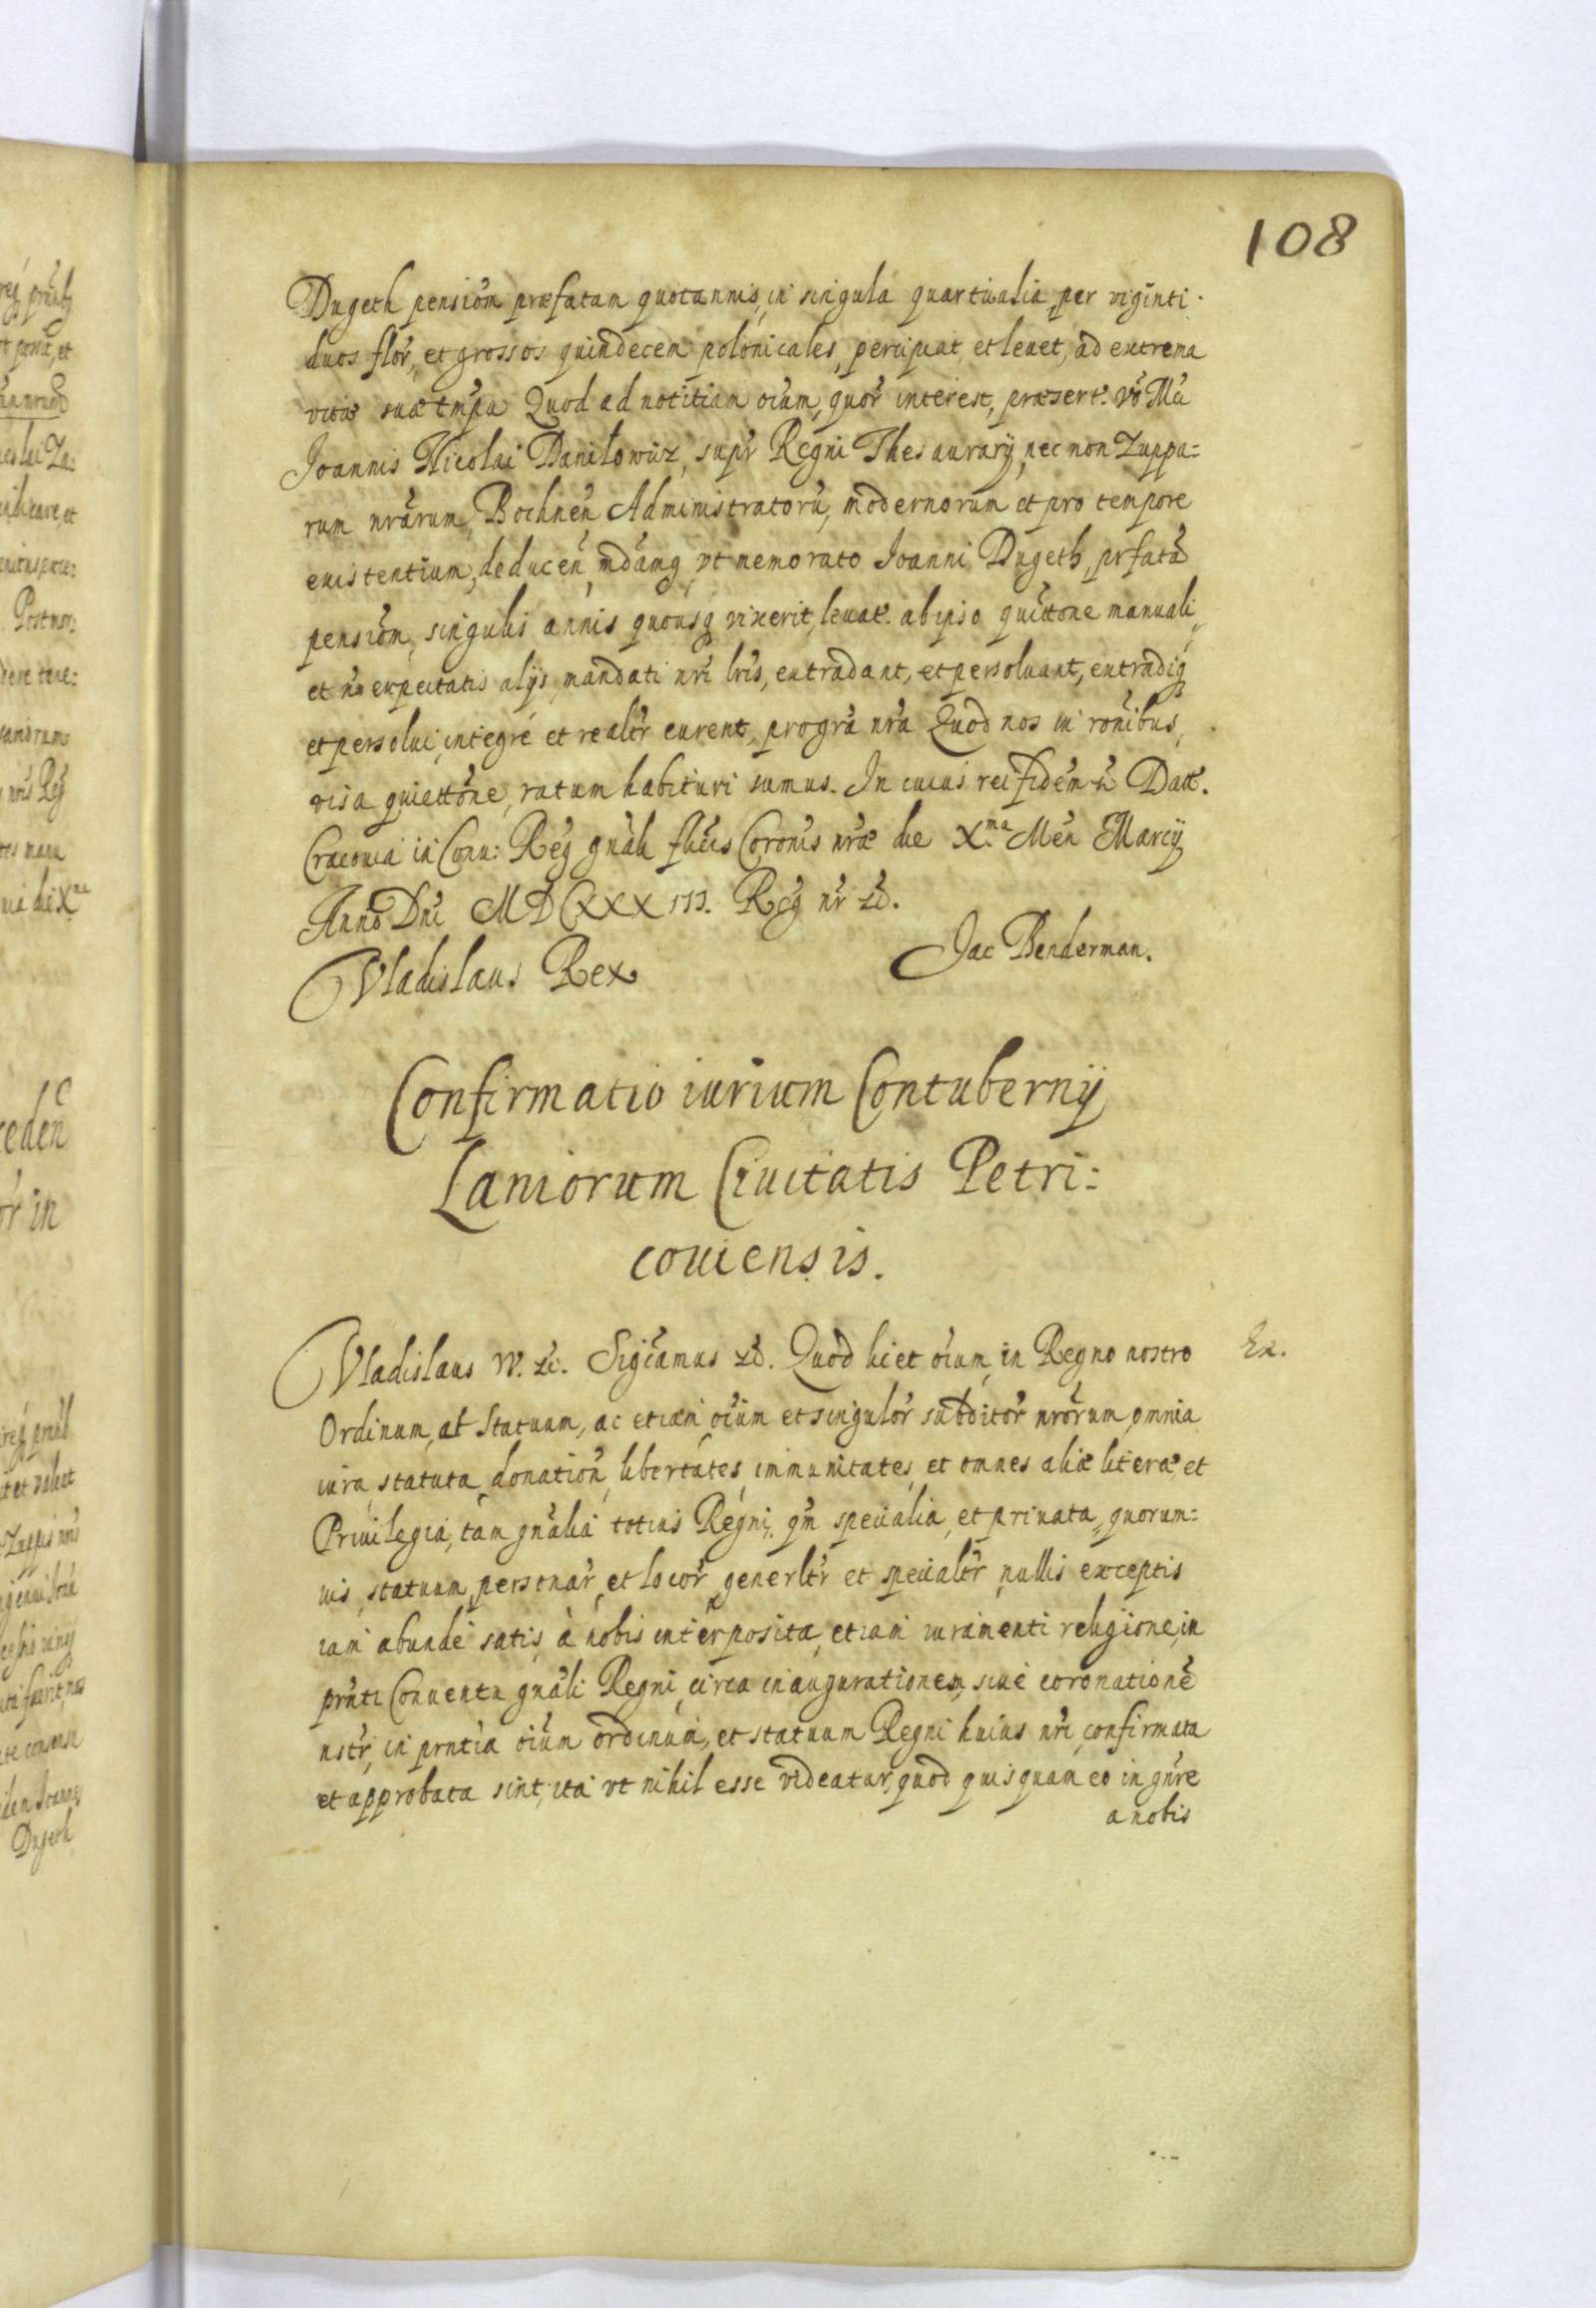 108
Dugeth pensiom præfatam quotannis, in singula quartualia, per viginti
duos flor, et grossos quindecem polonicales, percipiat, et leuet, ad extrema
vitæ suæ tmpa Quod ad notitiam oium, quor interest, præsert.
Joannis Nicolai Daniłowicz, supr Regni Thesaurarij, nec non Zuppa=
rum nrarum, Bochnen Administratoru, modernorum et pro tempore
existentium, deducen, mdamq, vt memorato Joanni Dugeth, prfata
pensiom, singulis annis quousq vixerit, leuat. ab ipso quittone manuali,
et no expectatis alijs, mandati nri lris, extradant, et persoluant, extradiq
et persolui, integre et realtr curent, pro gra nra Quod nos in ronibus,
visa quiettone, ratum habituri sumus. In cuius rei fidem &c Datt.
Cracouiæ in Conu: Reg gnali flicis Coronis nræ die X.ma Men Marcij
Anno Dni MDCXXXIII. Reg nr &c.
Vladislaus Rex
Jac Benderman.
Confirmatio iurium Contubernij
Laniorum Ciuitatis Petri=
couiensis.
Vladislaus IV. &c. Sigicamus &c. Quod licet oium, in Regno nostro
Ex.
Ordinum, at Statuum, ac etiam oium et singulor subditor nrorum, omnia
iura, statuta, donation, libertates, immunitates, et omnes aliæ literæ, et
Priuilegia, tam gnalia totius Regni, qm specialia, et priuata, quorum=
uis, statuum, personar, et locor, generltr et specialtr, nullis exceptis
iam abunde satis, à nobis interposita, etiam iuramenti religione, in
prnti Conuentu gnali Regni, circa inaugurationem, siue coronatione
nstr, in prntia oium ordinum, et statuum Regni huius nri, confirmata
et approbata sint, ita vt nihil esse videatur, quod quisquam eo in gnre
a nobis